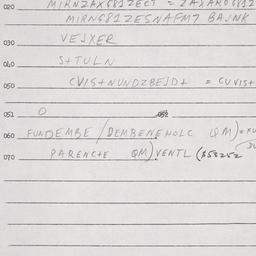 020 MIRNZAX681ZECT = ZAXARO6812
MIRN681ZESNAFM7 BAJNK
030 VEJXER
040 S+TULN
050 CVIS+NUNDZBEJD+ = CUVIS+
051 O 052
060 FUNDEMBE / DEMBENEHOLC QM) = FU
070 PARENC+E QM) VENTL